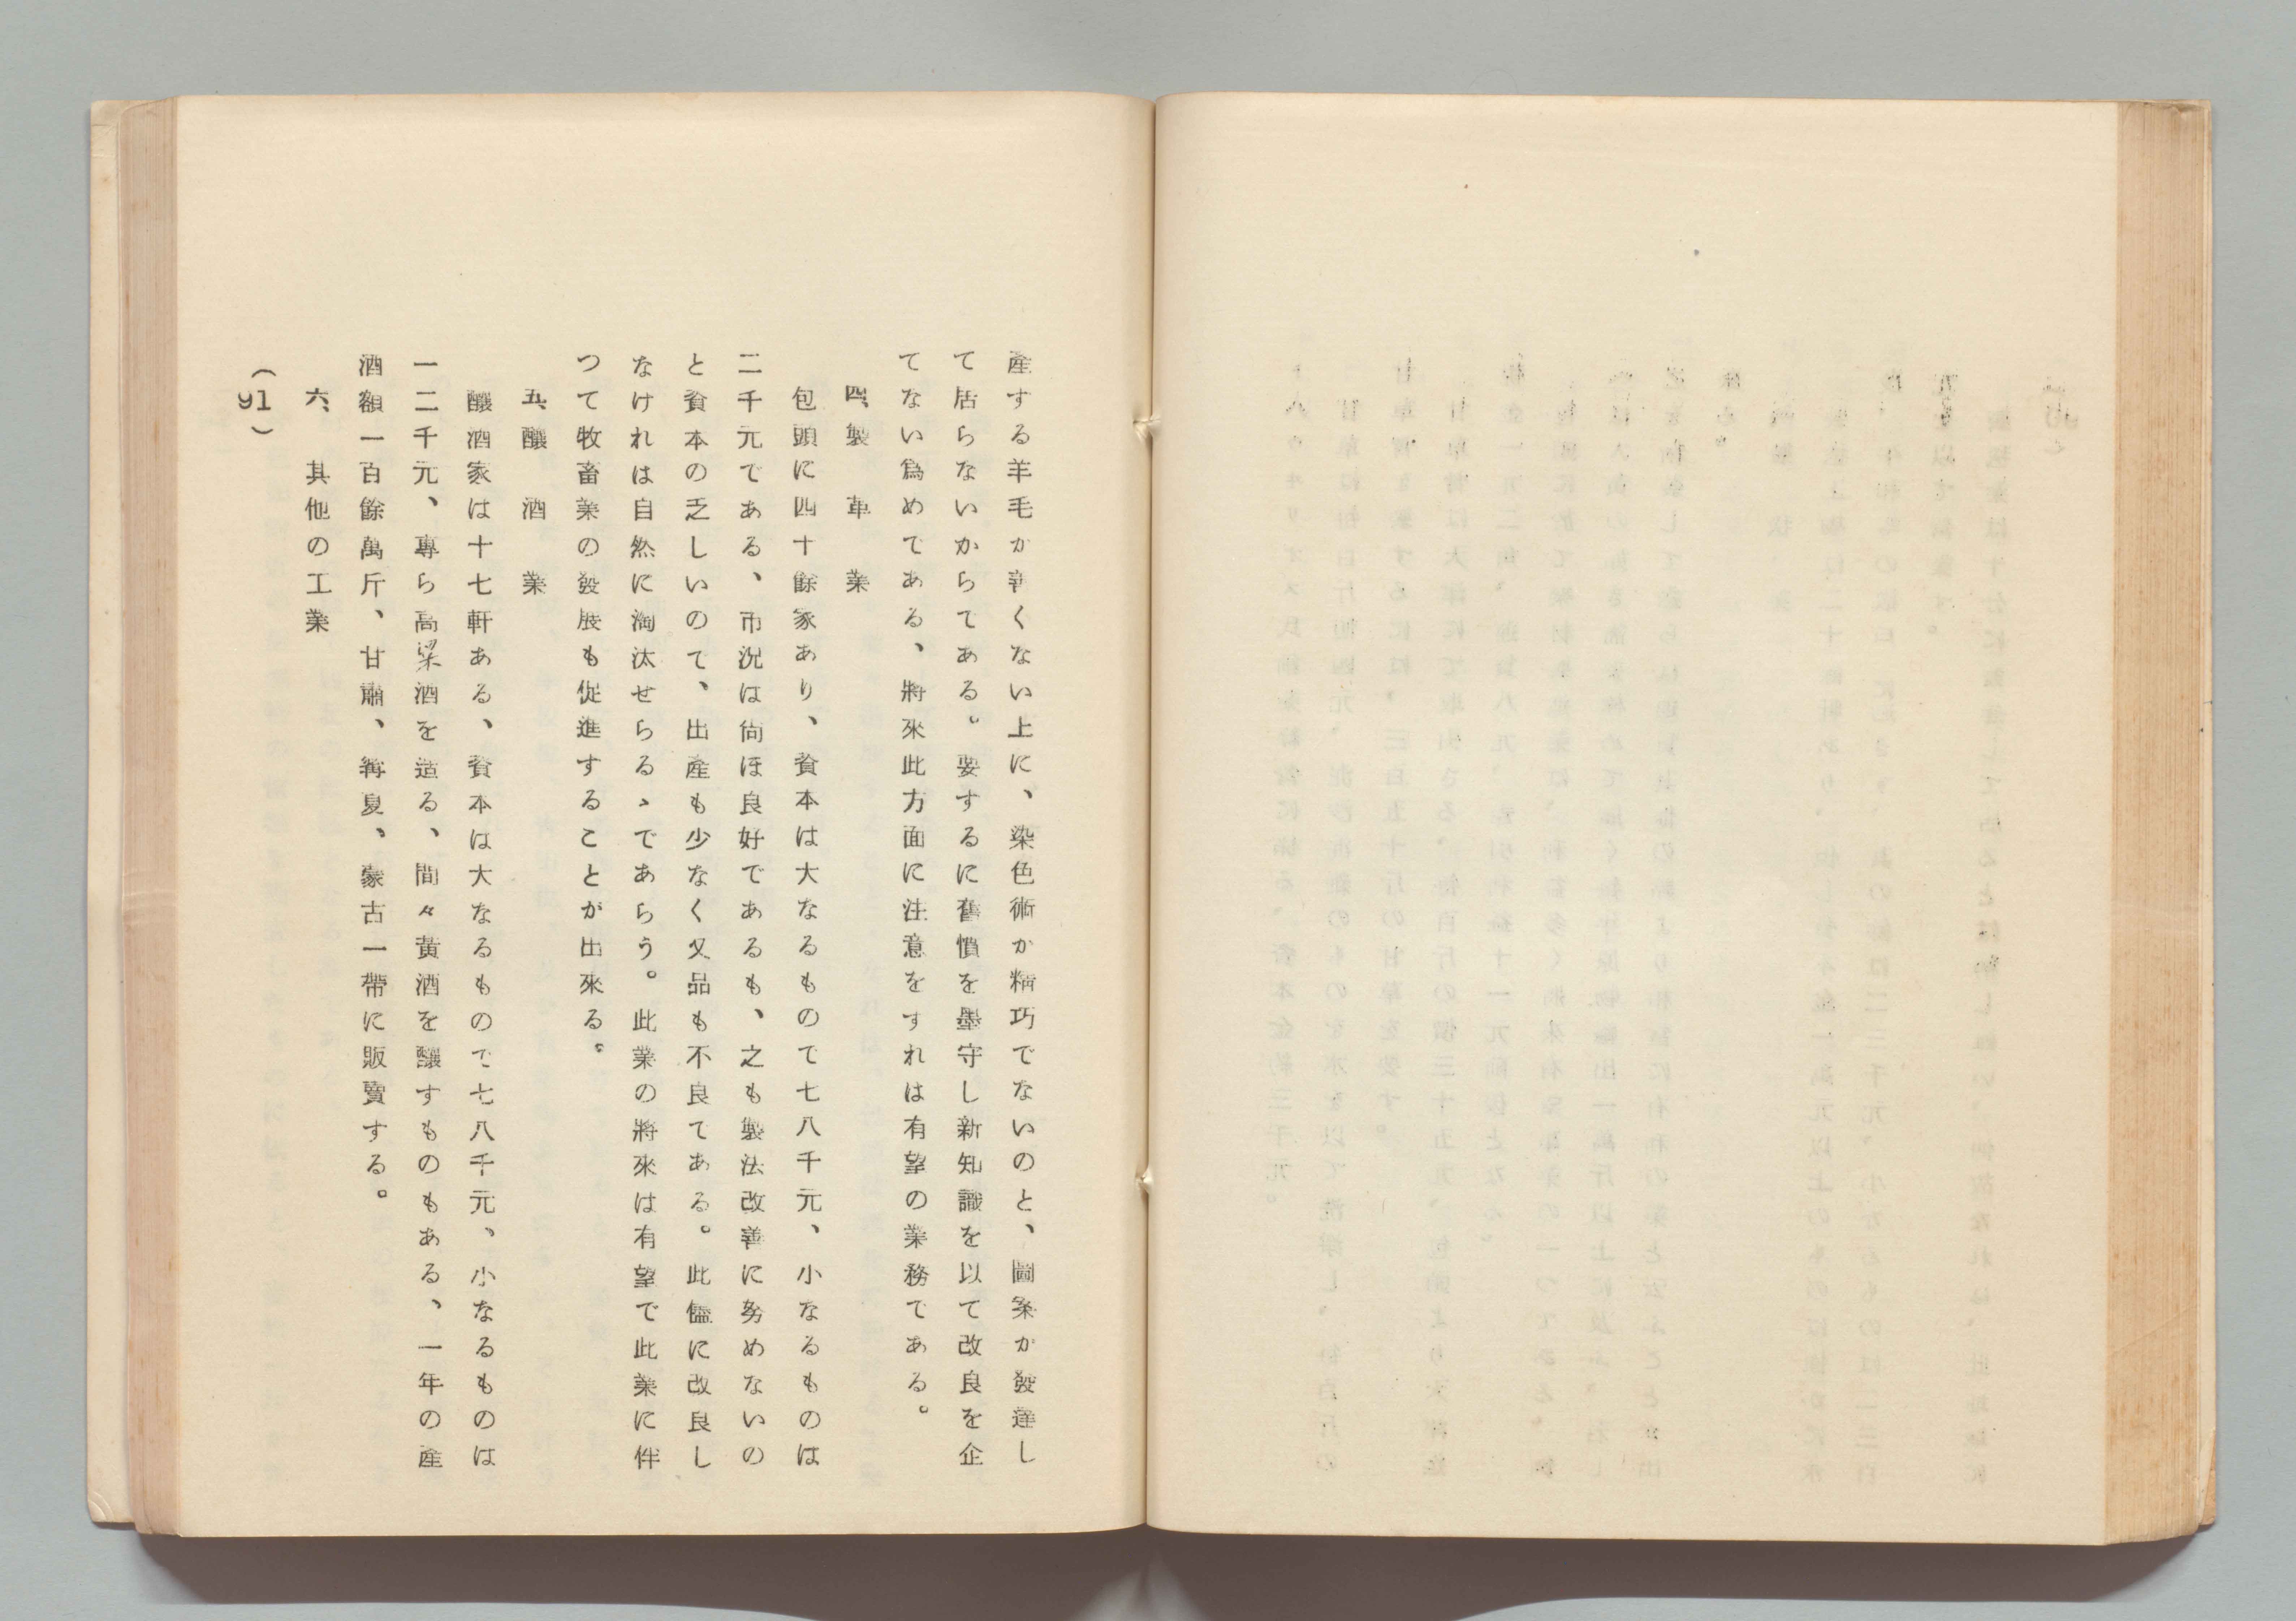 產する羊毛か善くない上に、染色術か精巧でないのと、圖案か發達し
て居らないからてある。要するに舊慣を墨守し新知識を以て改良を企
てない爲めてある、將來此方面に注意をすれは有望の業務である。
四、製革業
包頭に四十餘家あり、資本は大なるもので七八千元、小なるものは
二千元である、市況は尙ほ良好であるも、之も製法改善に努めないの
と資本の乏しいので、出產も少なく又品も不良てある。此儘に改良し
なけれは自然に淘汰せらるゝであらう。此業の將來は有望で此業に伴
つて牧畜業の發展も促進することが出來る。
五、釀酒業
釀酒家は十七軒ある、資本は大なるもので七八千元、小なるものは
一二千元、專ら高梁酒を造る、間々黃酒を釀すものもある、一年の產
酒額一百餘萬斤、甘肅、寗夏、蒙古一帶に販賣する。
六、其他の工業
(91)